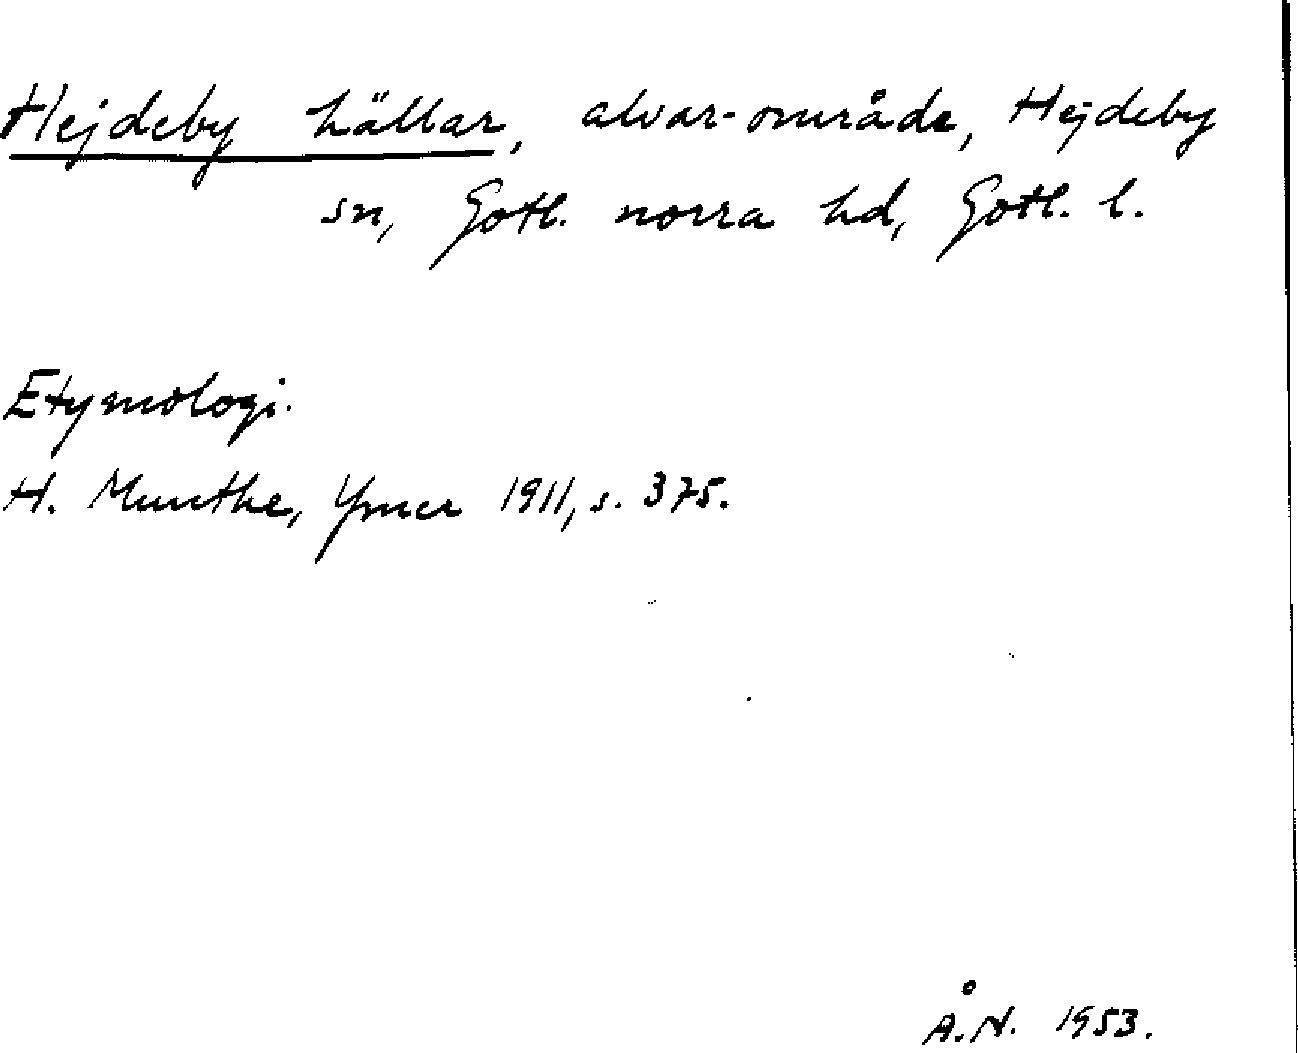 Hejdeby hällar, alvar-område, Hejdeby
sn, Gotl. norra hd, Gotl. l.
Etymologi.
H. Munthe, Ymer 1911, s. 375.
Å.N. 1953.